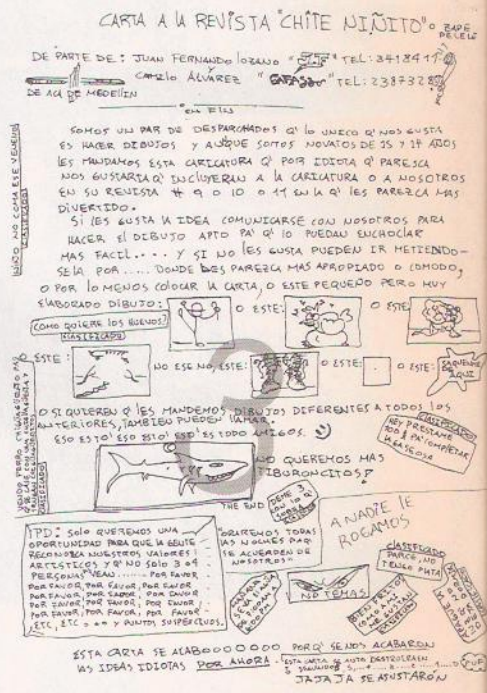 CARTA A LA REVISTA "CHITE NIÑITO" O BAPE
PELELE
DE PARTE DE: JUAN FERNANDO LOZANO TEL: 3418411
CAMILO ÁLVAREZ "GAFASSO" TEL: 2387328
DE ACÁ DE MEDELLIN
SOMOS UN PAR DE DESPARCHADOS Q' LO UNICO Q' NOS GUSTA
ES HACER DIBUJOS Y AUNQUE SOMOS NOVATOS DE 15 Y 14 AÑOS
LES MANDAMOS ESTA CARICATURA Q' POR IDIOTA Q' PARESCA
NOS GUSTARIA Q' INCLUYERAN A LA CARICATURA O A NOSOTROS
EN SU REVISTA # 9 O 10 O 11 EN LA Q' LES PAREZCA MAS
DIVERTIDO.
SI LES GUSTA LA IDEA COMUNICARSE CON NOSOTROS PARA
HACER EL DIBUJO APTO PA' Q' LO PUEDAN ENCHOCLAR
MAS FACIL.... Y SI NO LES GUSTA PUEDEN IR METIENDO-
SELA POR ..... DONDE LES PAREZCA MAS APROPIADO O COMODO,
O POR LO MENOS COLOCAR LA CARTA, O ESTE PEQUEÑO PERO MUY
ELABORADO DIBUJO:
O ESTE:
O ESTE
NIÑO NO COMA ESE VENENO
CLASIFICADO
COMO QUIERE LOS HUEVOS?
CLASIFICADO
O ESTE:
NO ESE NO, ESTE:
O ESTE:
O ESTE:
SAQUENME
DE AQUI
O SI QUIEREN Q' LES MANDEMOS DIBUJOS DIFERENTES A TODOS LOS
ANTERIORES, TAMBIEN PUEDEN LLAMAR.
ESO ES TO! ESO ESTO! ESO! ES TODO AMIGOS.
CLASIFICADO
HEY PRESTAME
100 $ PA' COMPLETAR
LA GASEOSA
VENDO PERRO CHIGUAGUEÑO
CLASIFICADO
NO QUEREMOS MAS
TIBURONCITOS!
THE END
DEME 3
CON LO Q'
SOBRA
PD: SOLO QUEREMOS UNA
OPORTUNIDAD PARA QUE LA GENTE
RECONOSCA NUESTROS VALORES
ARTISTICOS Y Q' NO SOLO 3 O 4
PERSONAS VEAN ...... POR FAVOR
POR FAVOR, POR FAVOR, POR FAVOR
POR FAVOR, POR FAVOR, POR FAVOR
POR FAVOR, POR FAVOR, POR FAVOR
POR FAVOR, POR FAVOR, POR FAVOR
ETC, ETC ... Y PUNTOS SUSPENSIVOS.
"ORAREMOS TODAS
LAS NOCHES PA Q'
SE ACUERDEN DE
NOSOTROS"
A NADIE LE
ROGAMOS
NO TEMAS
CLASIFICADO
PARCE, NO
TENGO PLATA
ESTA CARTA SE ACABOOOOOOOO PORQ' SE NOS ACABARON
LAS IDEAS IDIOTAS POR AHORA
ESTA CARTA SE AUTO DESTRUIRA EN
5 SEGUNDOS 5... 4... 3... 2... 1... 0
PUF
JA JA JA SE ASUSTARON